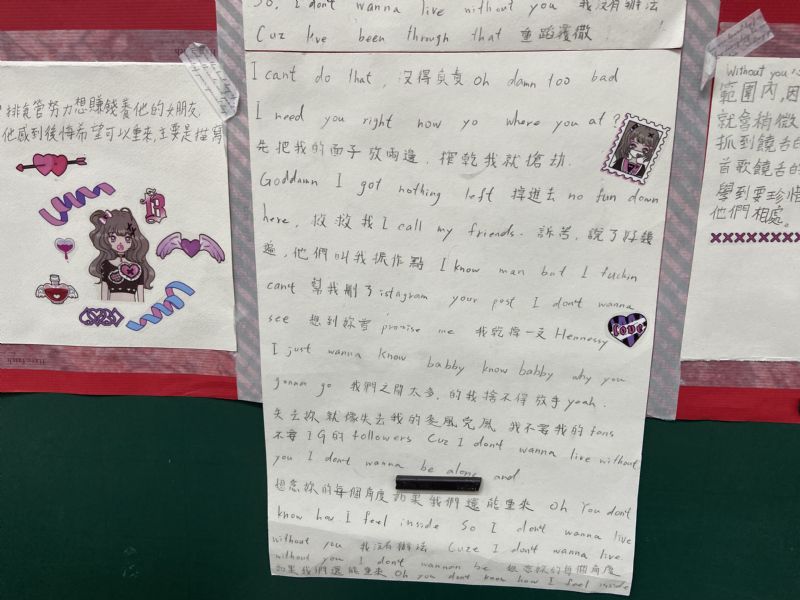 So, I don't wanna live without you 我沒有辦法
Cuz I've been through that 重蹈覆徹!
I can't do that, 沒得負責 Oh damn too bad
I need you right now yo where you at?
先把我的面子放兩邊, 撑乾我就搶劫.
Goddamn I got nothing left 撑進去 no fun down
here, 救救我 I call my friends. 訴苦, 說了好幾
遍, 他們叫我振作點 I know man but I fuckin
can't 幫我刪了 istagram your post I don't wanna
see 想到妳曾 promise me 我乾掉一支 Hennessy
I just wanna know babby know babby why you
gonna go 我們之間太多, 的我捨不得放手 yeah.
失去妳就像失去我的麥風克風 我不要我的 fans
不要 IG 的 followers Cuz I don't wanna live without
you I don't wanna be alone and
想念妳的每個角度 如果我們還能重來 Oh You don't
know how I feel inside So I don't wanna live
without you 我沒有辦法 Cuze I don't wanna live
without you I don't wannan be 想念妳的每個角度
如果我們還能重來 Oh you don't know how I feel inside
排骨管努力想賺錢養他的女朋友
他感到後悔希望可以重來,主要是描寫
Without you
範圍內,因
就會稍微
抓到饒舌的
首歌饒舌的
學到要珍惜
他們相處。
xxxxxxxx
Love